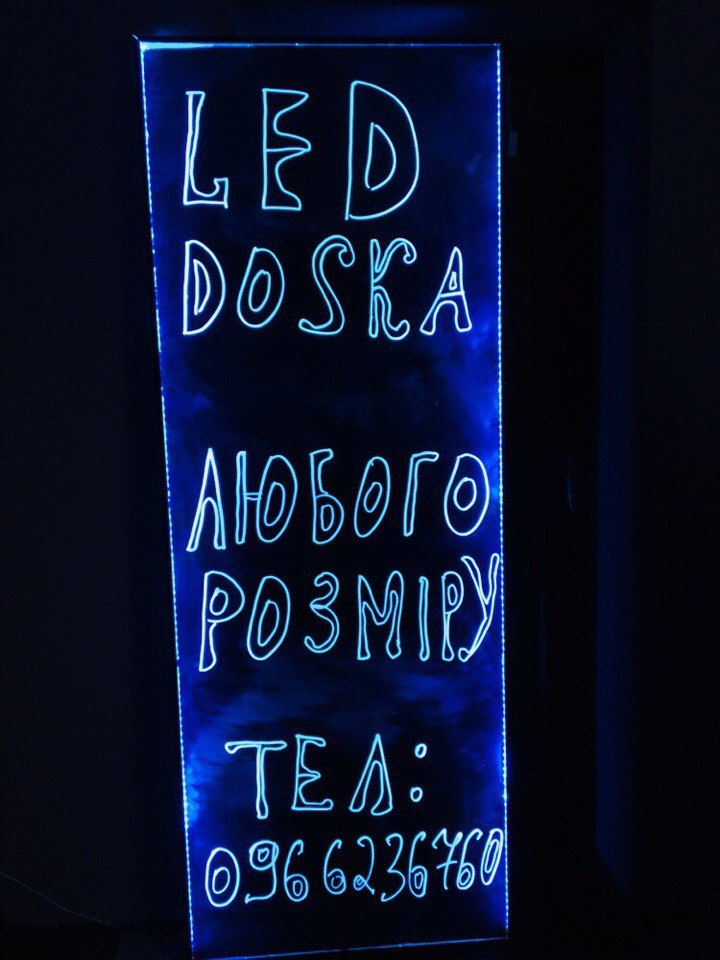 LED
DOSKA
ЛЮБОГО
РОЗМІРУ
ТЕЛ:
0966236760